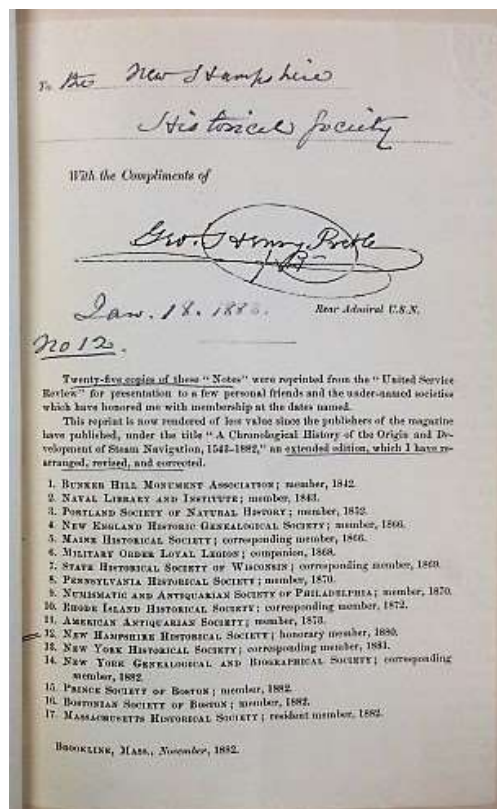 To the New Hampshire
Historical Society
With the Compliments of
Geo. Henry Preble
Rear Admiral U.S.N.
Jan. 18. 1883.
No 12.
Twenty-five copies of these "Notes" were reprinted from the "United Service
Review" for presentation to a few personal friends and the under-named societies
which have honored me with membership at the dates named.
This reprint is now rendered of less value since the publishers of the magazine
have published, under the title "A Chronological History of the Origin and De-
velopment of Steam Navigation, 1543-1882," an extended edition, which I have re-
arranged, revised, and corrected.
1. Bunker Hill Monument Association; member, 1842.
2. Naval Library and Institute; member, 1843.
3. Portland Society of Natural History; member, 1852.
4. New England Historic Genealogical Society; member, 1866.
5. Maine Historical Society; corresponding member, 1866.
6. Military Order Loyal Legion; companion, 1868.
7. State Historical Society of Wisconsin; corresponding member, 1869.
8. Pennsylvania Historical Society; member, 1870.
9. Numismatic and Antiquarian Society of Philadelphia; member, 1870.
10. Rhode Island Historical Society; corresponding member, 1872.
11. American Antiquarian Society; member, 1878.
12. New Hampshire Historical Society; honorary member, 1880.
13. New York Historical Society; corresponding member, 1881.
14. New York Genealogical and Biographical Society; corresponding
member, 1882.
15. Prince Society of Boston; member, 1882.
16. Bostonian Society of Boston; member, 1882.
17. Massachusetts Historical Society; resident member, 1882.
Brookline, Mass., November, 1882.